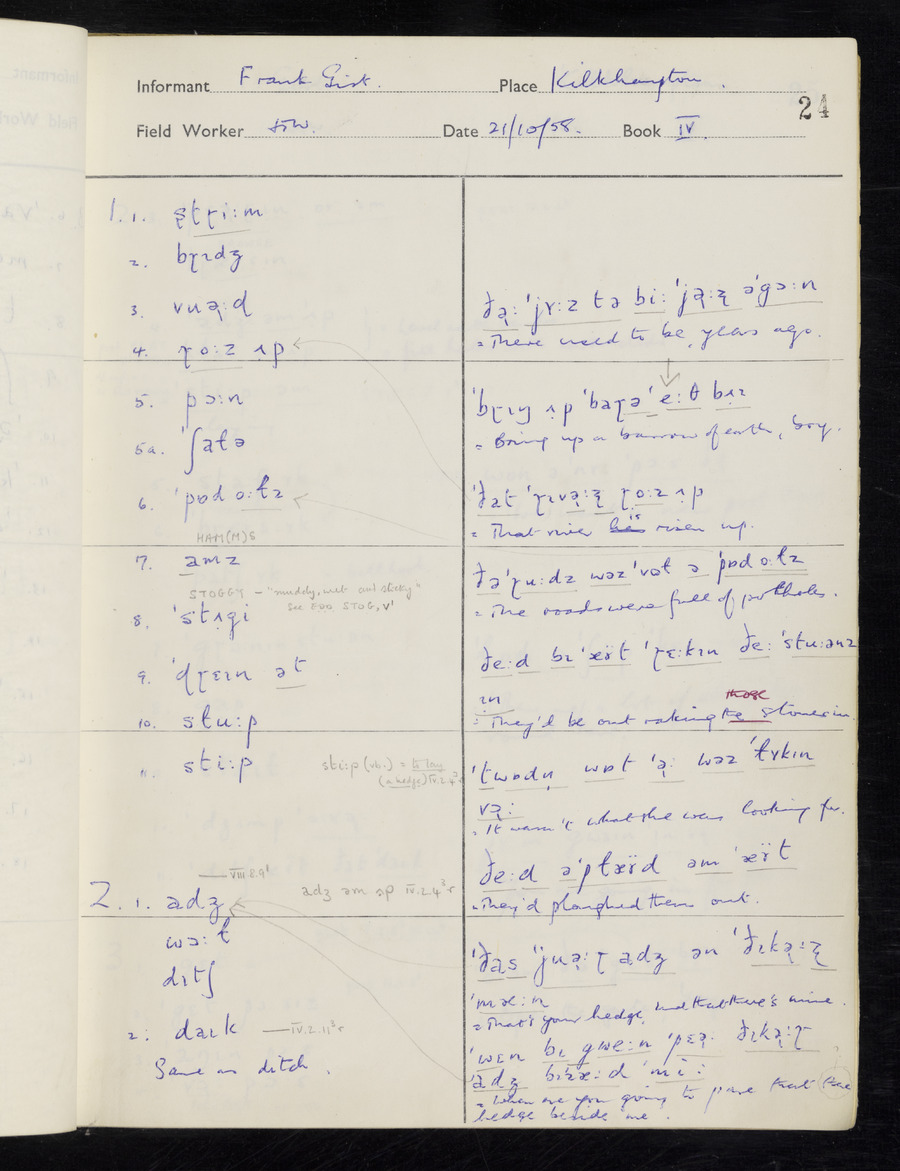 Informant Frank Gist. Place Kilkhampton.
24
Field Worker Date 21/10/58. Book IV.
1. 1. ştɽi:m
2. bɽɪdʒ
3. vuə̣:d
4. ɽo:z ʌp
5. pɔ:n
5a. ˈʃatə
6. ˈpɒd o:ɫz
HAM(M)S
7. amz
STOGGY – "muddy, wet and sticky"
See EDD STOG, v¹
8. ˈstʌgi
9. ˈdɽɛɪn ət
10. stu:p
11. sti:p
sti:p (vb.) = to lay
(a hedge) IV.2.4
VIII.8.9
2. 1. adʒ
adʒ əm ʌp IV.2.4
wɔ:ɫ
dɪtʃ
2. daɪk IV.2.11
Same as ditch.
ðə̣: ˈjʏ:z tə bi: ˈjə̣:ʐ əˈgɔ:n
= There used to be, years ago.
ˈbɽɪŋ ʌp ˈbaɽə ˈe:θ bʌɪ
= Bring up a barrow of earth, boy.
ˈðat ˈɽɪvə̣:ʐ ɽo:z ʌp
= That river is risen up.
ðə ˈɽu:dz wəz ˈvʊt ə ˈpɒd o:ɫz
= The roads were full of potholes.
ðe:d bɪ ˈæʏt ˈɽɛ:kɪn ðe: ˈstu:ənz
ɪn
those
= They'd be out raking the stones in.
ˈtwɒdn wɒt ˈə̣: wəz ˈɫʏkɪn
və̣:
= It wasn't what she was looking for.
ðe:d əˈplæʏd əm ˈæʏt
= They'd ploughed them out.
ˈðas ˈjuə̣:ɽ adʒ ən ˈðɪkə̣:ʐ
ˈmæ:n
= That's your hedge, and that there's mine.
ˈwɛn bɪ gwe:n ˈpɛə̣: ðɪkə̣:ɽ
ˈadʒ bɪzæ:d ˈmi:
= When are you going to pare that there
hedge beside me.